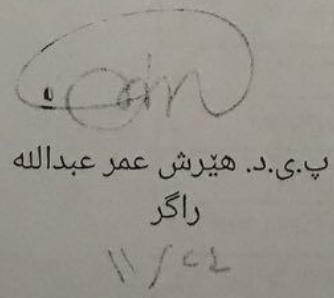 پ.ی.د. هێرش عمر عبدالله
راگر
١١/٢٤